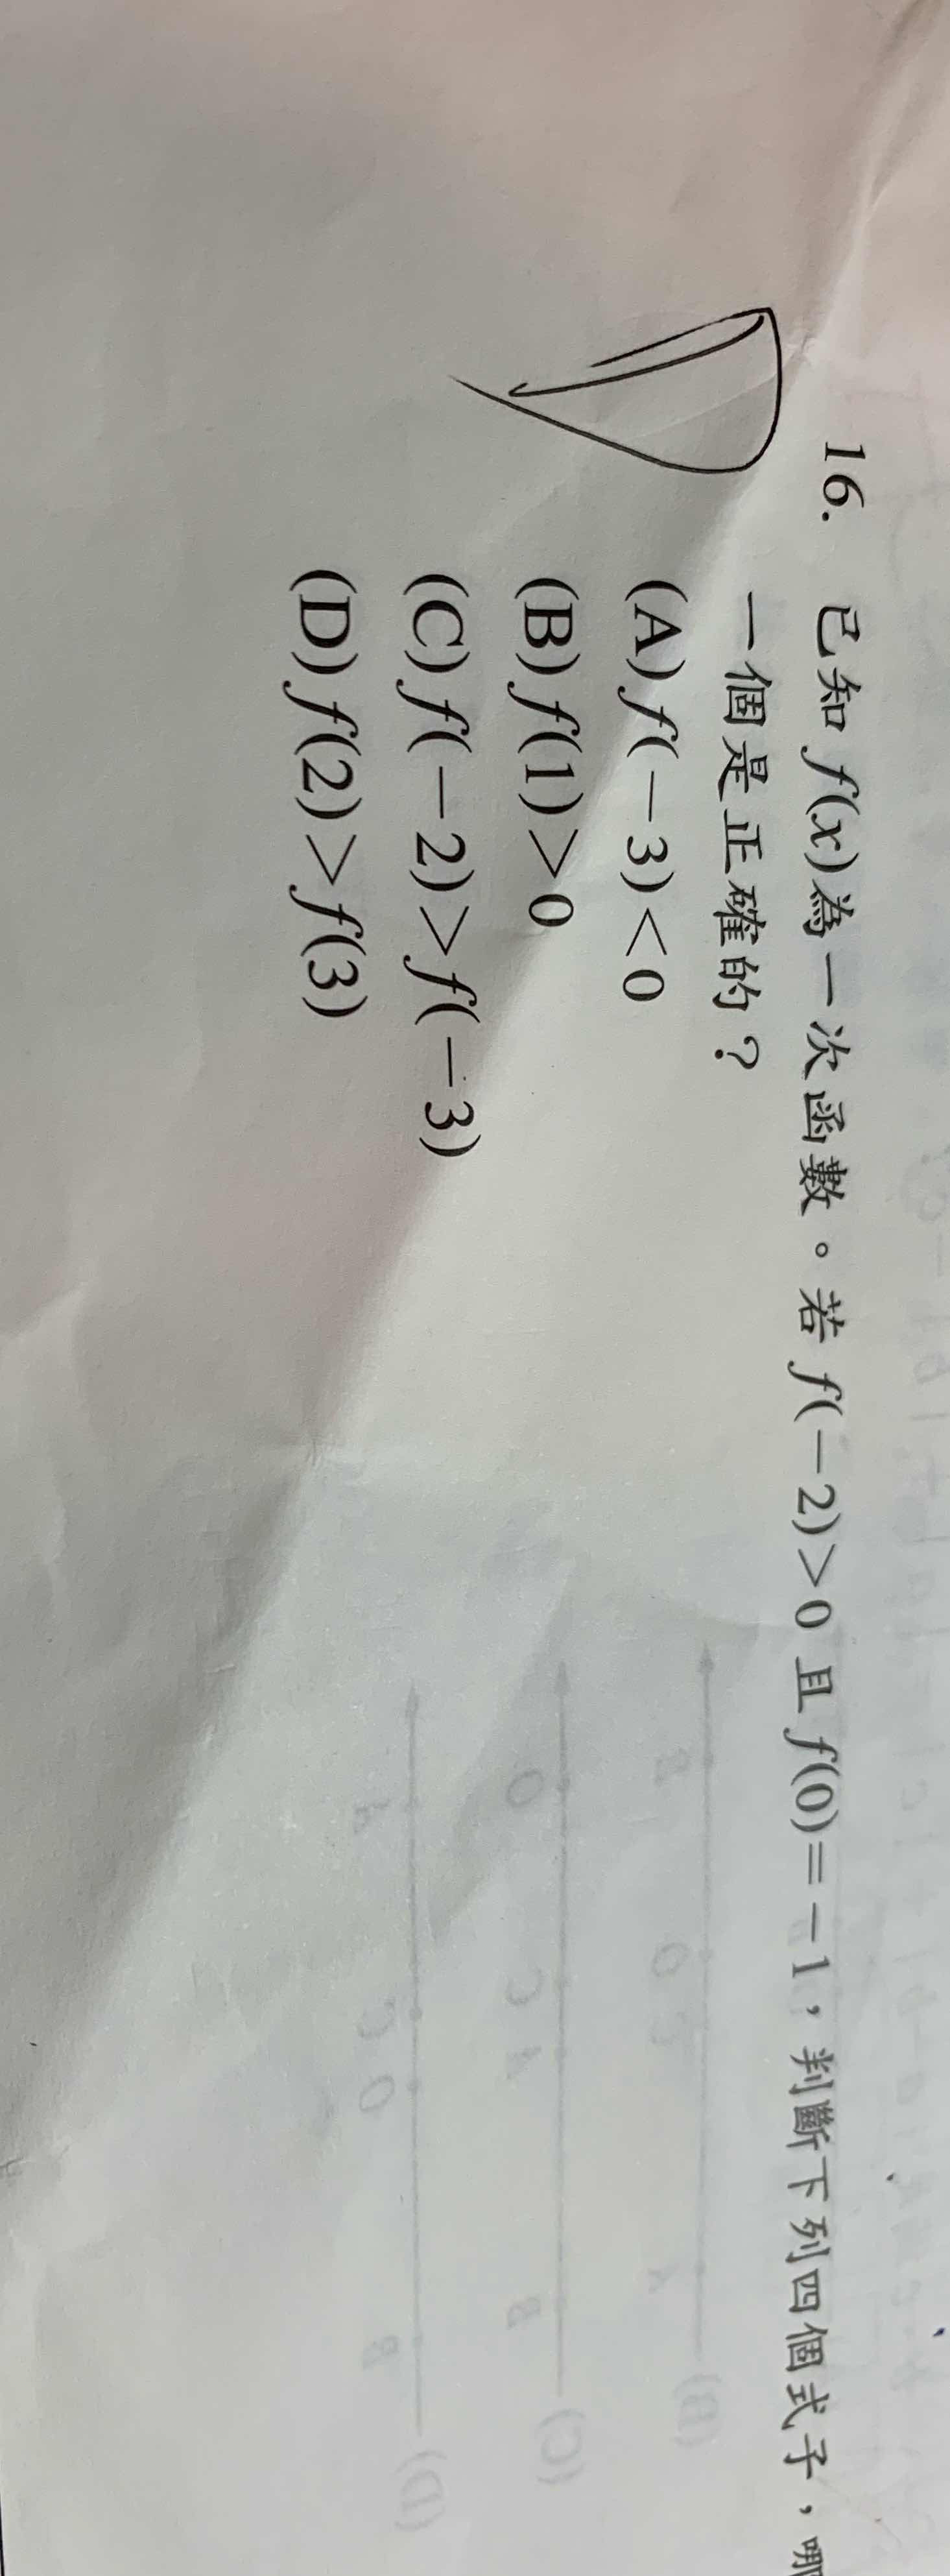 16. 已知 f(x)為一次函數。若 f(－2)＞0 且 f(0)=－1，判斷下列四個式子，哪
一個是正確的？
(A) f(－3)＜0
(B) f(1)＞0
(C) f(－2)＞f(－3)
(D) f(2)＞f(3)